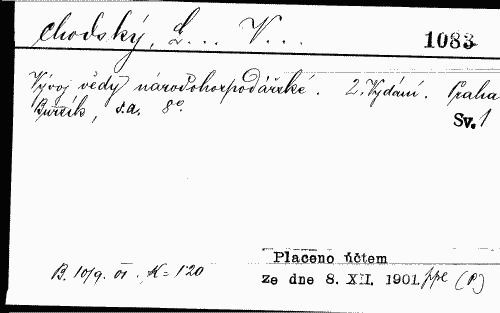 Chodský, L... V...
1083
Vývoj vědy národohospodářské. 2. Vydání. Praha
Bursík, s.a. 8°.
Sv. 1
Placeno účtem
B. 10/9. 01. K = 1·20
ze dne 8. XII. 1901. ppe (P)